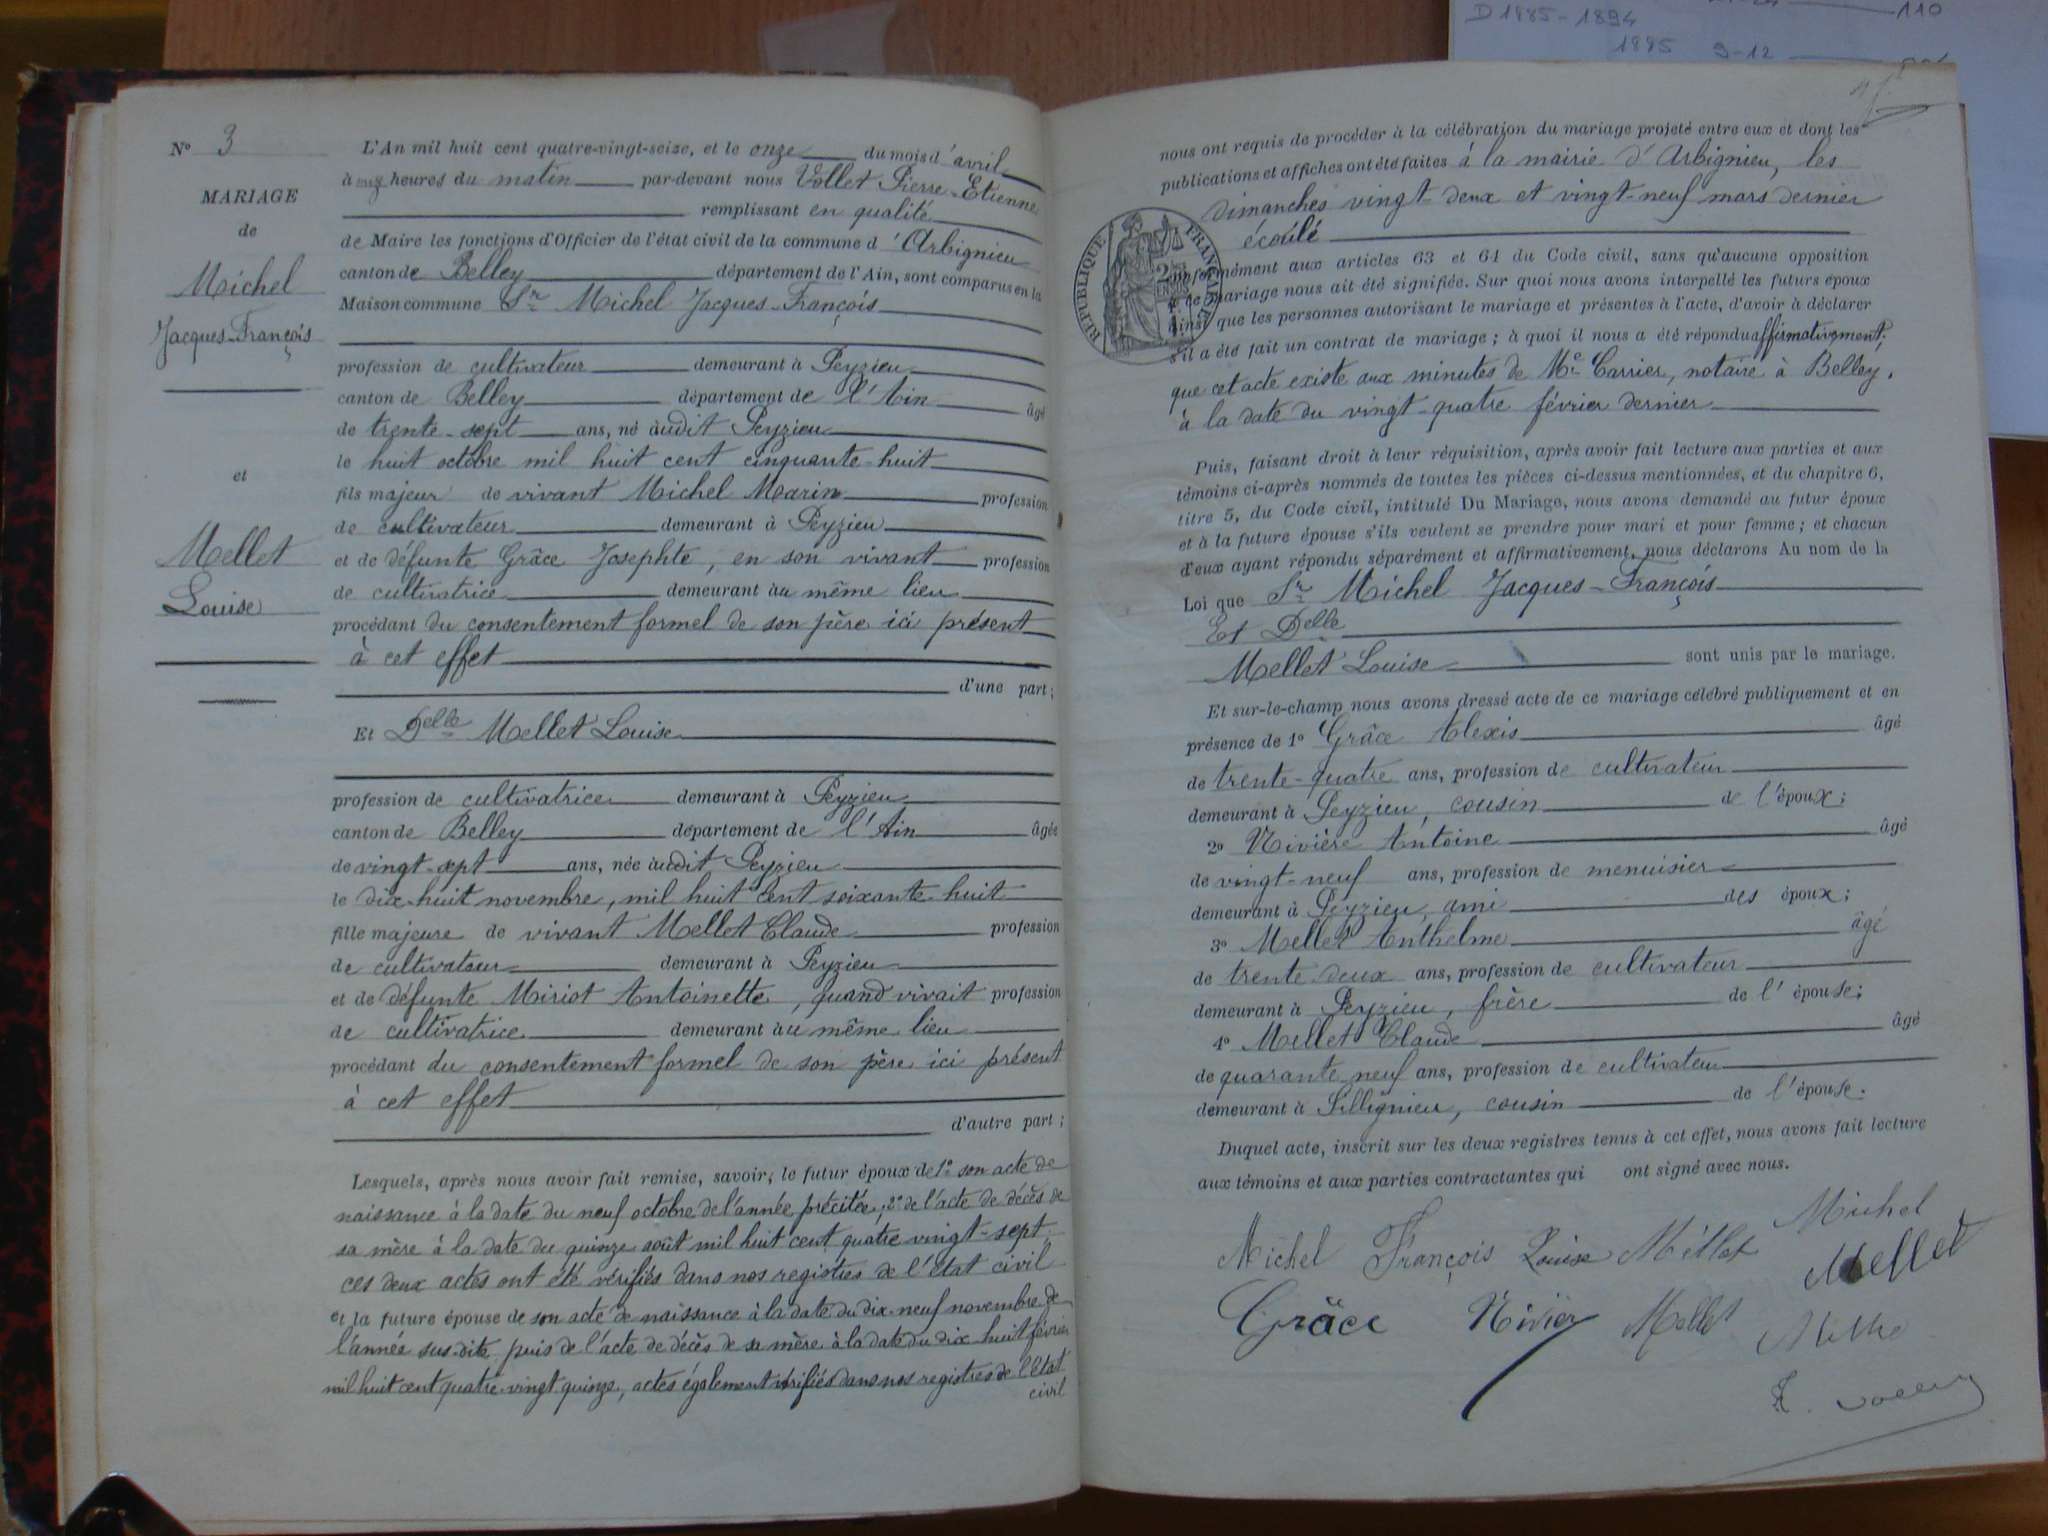 D 1885-1894
110
1895 9-12
Nº 3
MARIAGE
de
Michel
Jacques-François
et
Mellet
Louise
L'An mil huit cent quatre-vingt-seize, et le onze du mois d'avril
à onze heures du matin par-devant nous Vollet Pierre-Etienne
remplissant en qualité
de Maire les fonctions d'Officier de l'état civil de la commune d'Arbignieu
canton de Belley département de l'Ain, sont comparus en la
Maison commune Sr Michel Jacques-François
profession de cultivateur demeurant à Peyzieu
canton de Belley département de l'Ain âgé
de trente-sept ans, né àudit Peyzieu
le huit octobre mil huit cent cinquante-huit
fils majeur de vivant Michel Marin profession
de cultivateur demeurant à Peyzieu
et de défunte Grâce Josephte, en son vivant profession
de cultivatrice demeurant àu même lieu
procédant du consentement formel de son père ici présent
à cet effet
d'une part;
Et Delle Mellet Louise
profession de cultivatrice demeurant à Peyzieu
canton de Belley département de l'Ain âgée
de vingt-sept ans, née àudit Peyzieu
le dix-huit novembre, mil huit cent soixante-huit
fille majeure de vivant Mellet Claude profession
de cultivateur demeurant à Peyzieu
et de défunte Miriot Antoinette, quand vivait profession
de cultivatrice demeurant àu même lieu
procédant du consentement formel de son père ici présent
à cet effet
d'autre part;
Lesquels, après nous avoir fait remise, savoir; le futur époux de 1º son acte de
naissance à la date du neuf octobre de l'année précitée, 2º de l'acte de décès de
sa mère à la date du quinze août mil huit cent quatre vingt-sept
ces deux actes ont été vérifiés dans nos registres de l'état civil
et la future épouse de son acte de naissance à la date du dix-neuf novembre de
l'année sus-dite puis de l'acte de décès de sa mère à la date du dix huit février
mil huit cent quatre-vingt quinze, actes également vérifiés dans nos registres de l'état
civil
nous ont requis de procéder à la célébration du mariage projeté entre eux et dont les
publications et affiches ont été faites à la mairie d'Arbignieu, les
dimanches vingt-deux et vingt-neuf mars dernier
écoulé
REPUBLIQUE FRANÇAISE
conformément aux articles 63 et 64 du Code civil, sans qu'aucune opposition
à ce mariage nous ait été signifiée. Sur quoi nous avons interpellé les futurs époux
ainsi que les personnes autorisant le mariage et présentes à l'acte, d'avoir à déclarer
s'il a été fait un contrat de mariage; à quoi il nous a été répondu affirmativement;
que cet acte existe aux minutes de Me Carrier, notaire à Belley,
à la date du vingt-quatre février dernier
Puis, faisant droit à leur réquisition, après avoir fait lecture aux parties et aux
témoins ci-après nommés de toutes les pièces ci-dessus mentionnées, et du chapitre 6,
titre 5, du Code civil, intitulé Du Mariage, nous avons demandé au futur époux
et à la future épouse s'ils veulent se prendre pour mari et pour femme; et chacun
d'eux ayant répondu séparément et affirmativement, nous déclarons Au nom de la
Loi que Sr Michel Jacques-François
Et Delle
Mellet Louise sont unis par le mariage.
Et sur-le-champ nous avons dressé acte de ce mariage célébré publiquement et en
présence de 1º Grâce Alexis âgé
de trente-quatre ans, profession de cultivateur
demeurant à Peyzieu, cousin de l'époux;
2º Nivière Antoine âgé
de vingt-neuf ans, profession de menuisier
demeurant à Peyzieu, ami des époux;
3º Mellet Anthelme âgé
de trente deux ans, profession de cultivateur
demeurant à Peyzieu, frère de l'épouse;
4º Mellet Claude âgé
de quarante neuf ans, profession de cultivateur
demeurant à Sillignieu, cousin de l'épouse.
Duquel acte, inscrit sur les deux registres tenus à cet effet, nous avons fait lecture
aux témoins et aux parties contractantes qui ont signé avec nous.
Michel François Louise Mellet Michel
Mellet
Grâce Nivier Mellet